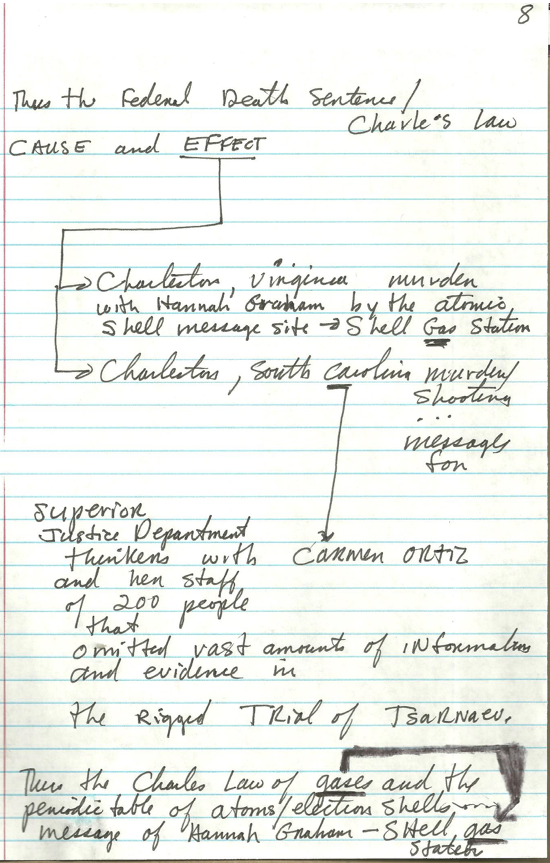 8
Thus the Federal Death Sentence/
Charle's Law
CAUSE and EFFECT
Charleston, Virginia murder
with Hannah Graham by the atomic
Shell message site → Shell Gas Station
Charleston, South Carolina murder/
Shooting
...
messages
for
Superior
Justice Department
thinkers with CARMEN ORTIZ
and her staff
of 200 people
that
omitted vast amounts of information
and evidence in
the Rigged TRial of TsaRNaev.
Thus the Charles Law of gases and the
periodic table of atoms/election shells
message of Hannah Graham – SHell gas
Station